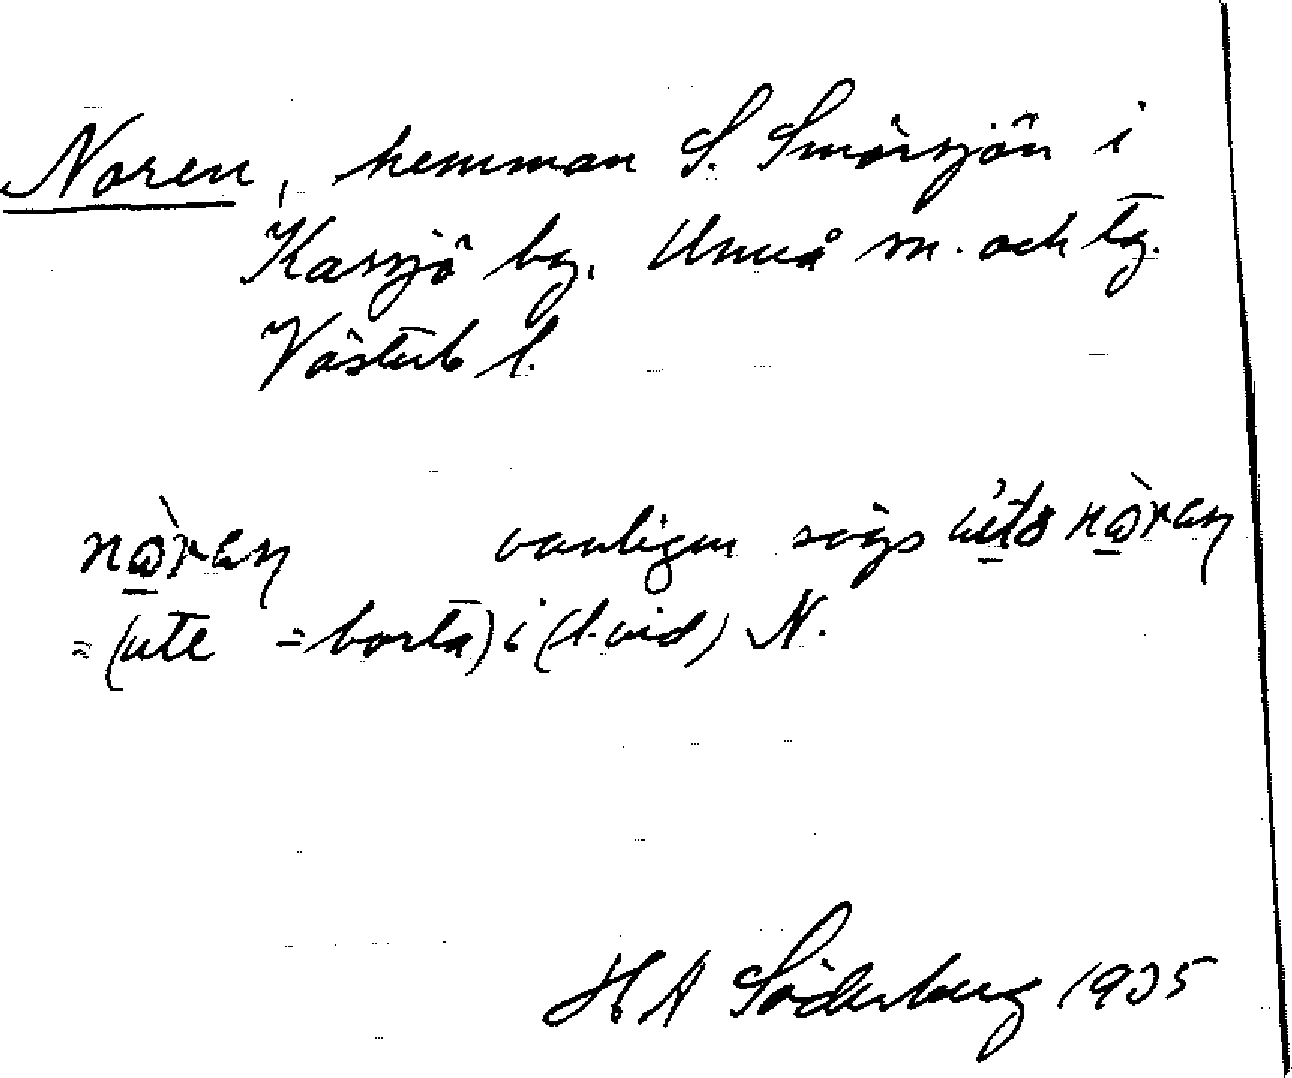 Noren, hemman S. Smörsjön i
Kassjö by. Umeå sn. och tg.
Västerb l.
nὼren vanligen sägs ùts nὼren
= (ute = borta) i (l. vid) N.
H A Söderberg 1935